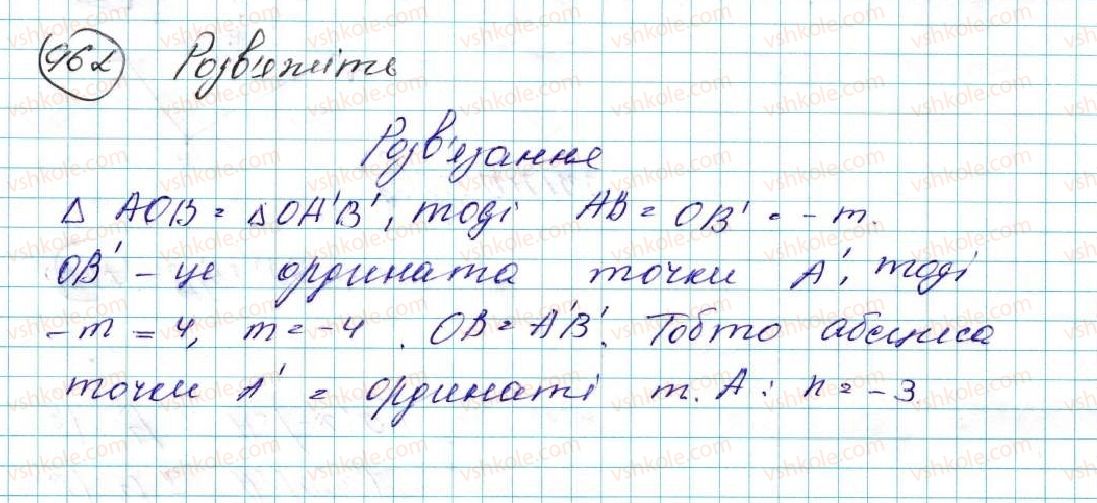 962 Розв'яжіть
Розв'язання
△ AOB = △ OA'B', тоді AB = OB' = -m.
OB' - це ордината точки A', тоді
-m = 4, m = -4. OB = A'B'. Тобто абсциса
точки A' = ординаті т. A: n = -3